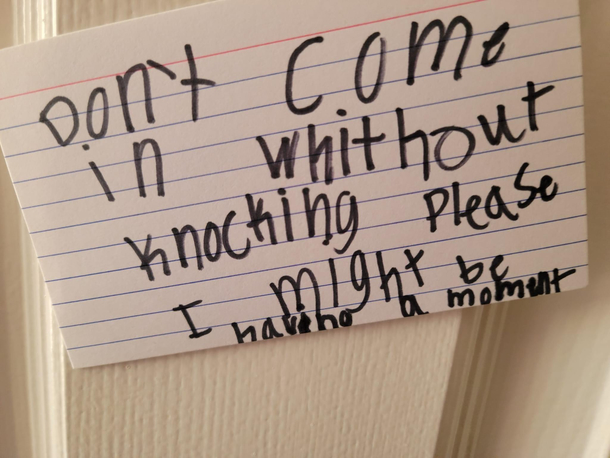 Don't Come
in whithout
knocking please
I might be
having a moment